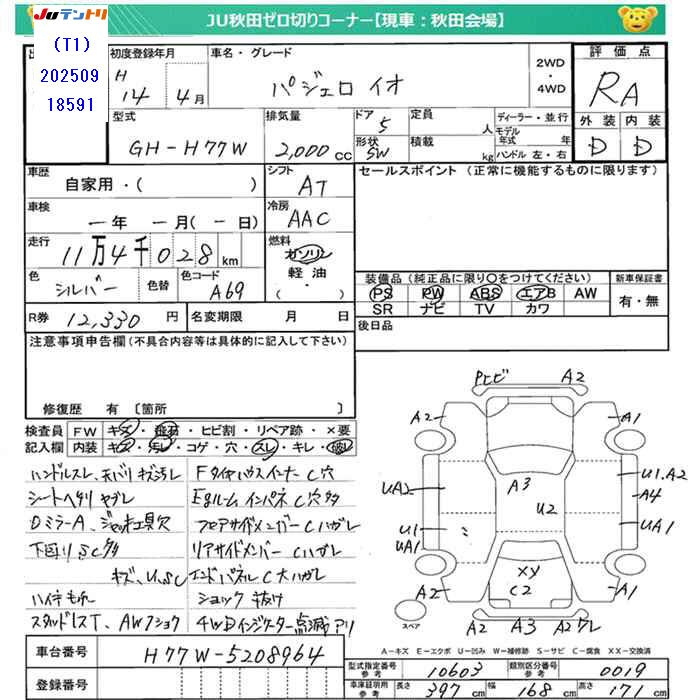 JUテントリ
JU秋田ゼロ切りコーナー【現車：秋田会場】
(T1)
202509
18591
初度登録年月
H
14 4月
車名・グレード
パジェロ イオ
2WD
・
4WD
評価点
RA
外装 内装
D D
型式
GH-H77W
排気量
2,000cc
ドア
5
形状
SW
定員
人
積載
kg
ディーラー・並行
モデル年式 年
ハンドル 左・右
車歴
自家用・( )
シフト
AT
車検
ー年 ー月(ー日)
冷房
AAC
走行
11万4千028km
燃料
ガソリン
軽油
・( )
色
シルバー
色替
色コード
A69
R券 12,330円
名変期限 月 日
セールスポイント（正常に機能するものに限ります）
装備品（純正品に限り○をつけてください）
PS PW ABS エアB AW
SR ナビ TV カワ
新車保証書
有・無
後日品
注意事項申告欄（不具合内容等は具体的に記入して下さい）
修復歴 有〔箇所 〕
検査員 FW キズ・砂石・ヒビ割・リペア跡・×要
記入欄 内装 キズ・汚レ・コゲ・穴・スレ・キレ・破レ
ハンドルスレ、天バリキズ汚レ
シートヘタリ ヤブレ
DミラーA、ジャッキ工具欠
下回りSC多
キズ、U、SC
ハイチもれ
スタッドレスT、AWフショク
FタイヤハウスインナーC穴
EgルームインパネC穴多
フロアサイドメンバーCハガレ
リアサイドメンバーCハガレ
エンドパネルC大ハガレ
ショック抜け
4WDインジケーター点滅アリ
Pヒビ A2
A2 A1
UA2 A3 U2 U1.A2
A4
U1 UA1
UA1
XY
C2
A2 A1
A2 A3 A2ワレ
スペア
A－キズ E－エクボ U－凹み W－補修跡 S－サビ C－腐食 XX－交換済
車台番号 H77W-5208964
登録番号
型式指定番号 参考 10603
類別区分番号 参考 0019
車庫証明用 参考 長さ 397cm 幅 168cm 高さ 171cm